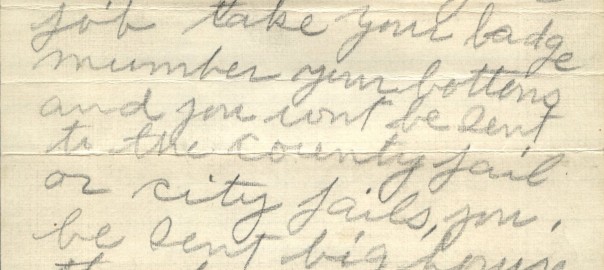 job take your badge
mumber your bottons
and you wont be sent
to the county jail
or city jails, you,
be sent big house